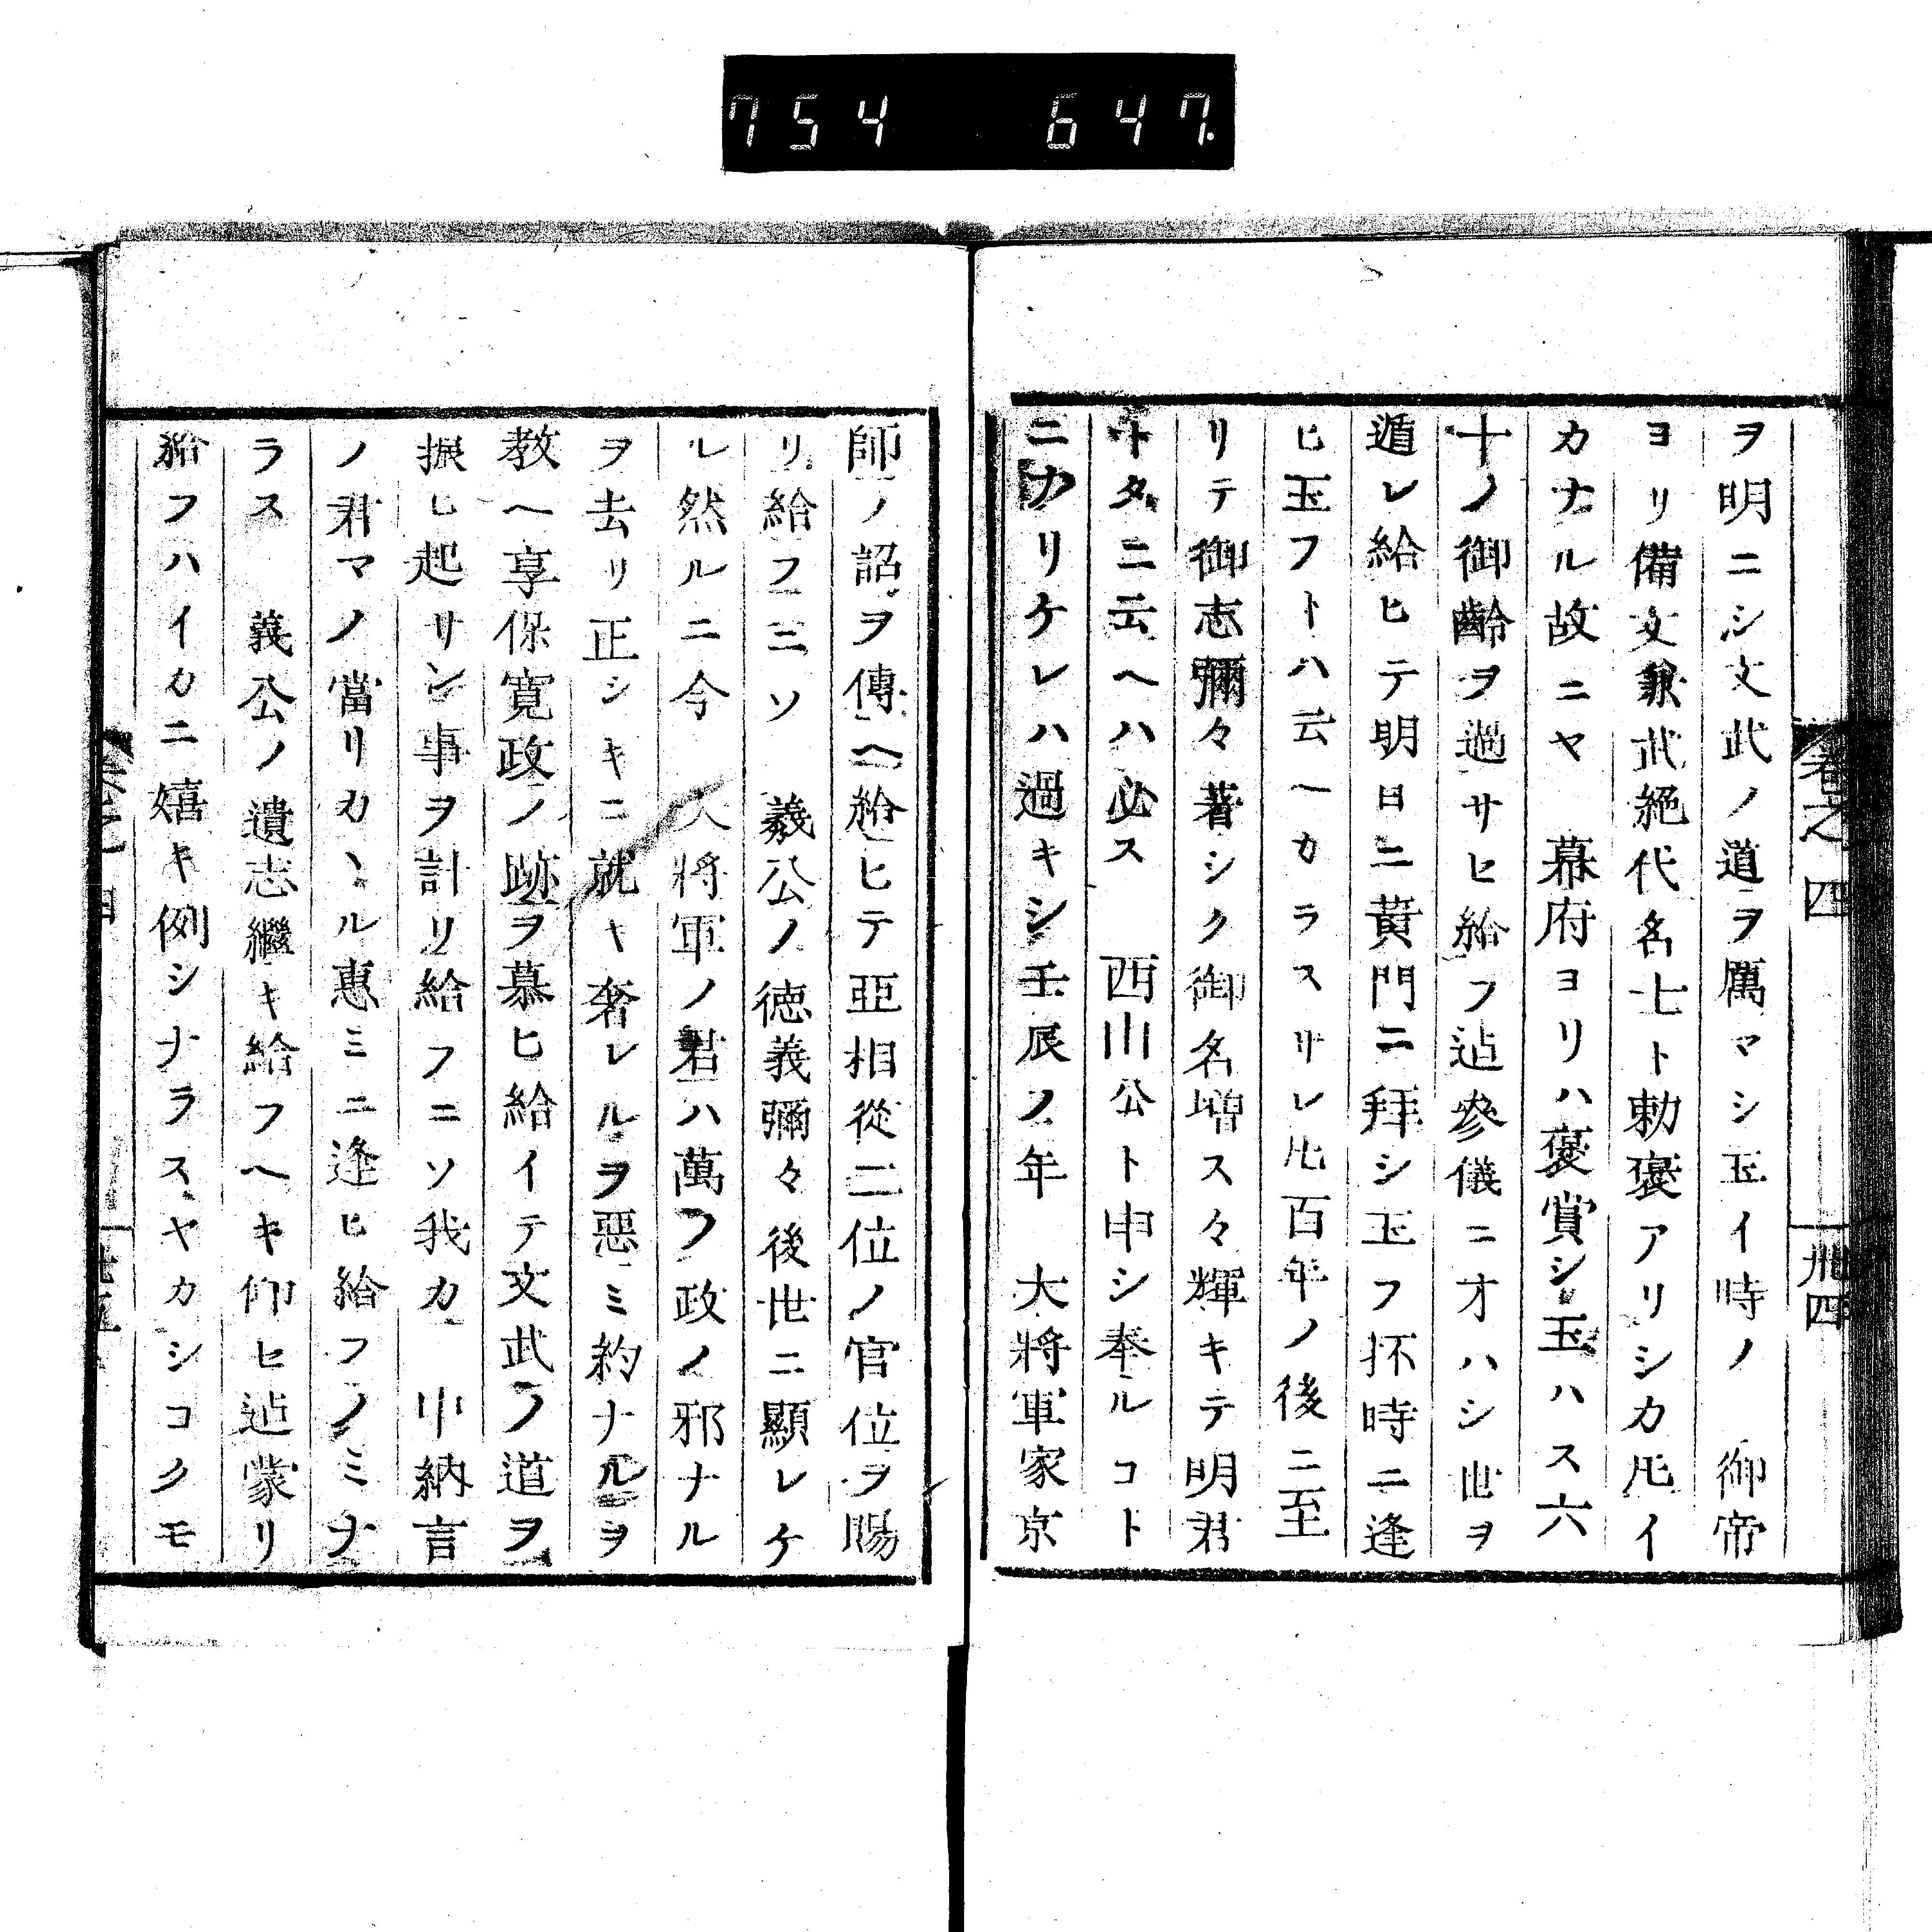 754 647.
卷之四 丗四
ヲ明ニシ文武ノ道ヲ厲マシ玉イ時ノ 御帝
ヨリ備文兼武絶代名士ト勅褒アリシカ𪜈イ
カナル故ニヤ 幕府ヨリハ褒賞シ玉ハス六
十ノ御齡ヲ過サセ給フ迠參儀ニオハシ世ヲ
遁レ給ヒテ明日ニ黄門ニ拜シ玉フ抔時ニ逢
ヒ玉フトハ云ヘカラスサレ𪜈百年ノ後ニ至
リテ御志彌々著シク御名増ス々輝キテ明君
ト タニ云ヘハ必ス 西山公ト申シ奉ルコト
ニナリケレハ過キシ壬辰ノ年 大將軍家京
師ノ詔ヲ傳ヘ給ヒテ亞相從二位ノ官位ヲ賜
リ給フニソ 義公ノ徳義彌々後世ニ顯レケ
レ然ルニ今 大將軍ノ君ハ萬フ政ノ邪ナル
ヲ去リ正シキニ就キ奢レルヲ惡ミ約ナルヲ
教ヘ享保寛政ノ跡ヲ慕ヒ給イテ文武ノ道ヲ
振ヒ起サン事ヲ計リ給フニソ我カ 中納言
ノ君マノ當リカヽル惠ミニ逢ヒ給フノミナ
ラス 義公ノ遺志繼キ給フヘキ仰セ迠蒙リ
給フハイカニ嬉キ例シナラスヤカシコクモ